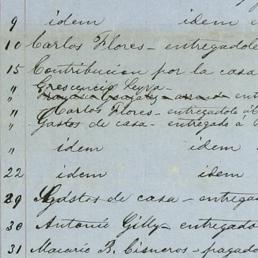 9 idem idem
10 Carlos Flores - entregadole
15 Contribucion por la casa
" Crescencio Leyva -
" ent
" Carlos Flores - entregadole á
" Gastos de casa - entregado á
" idem idem
22 idem idem
29 Gastos de casa - entrega
30 Antonio Gilly - entregado
31 Macario B. Cisneros - pagado